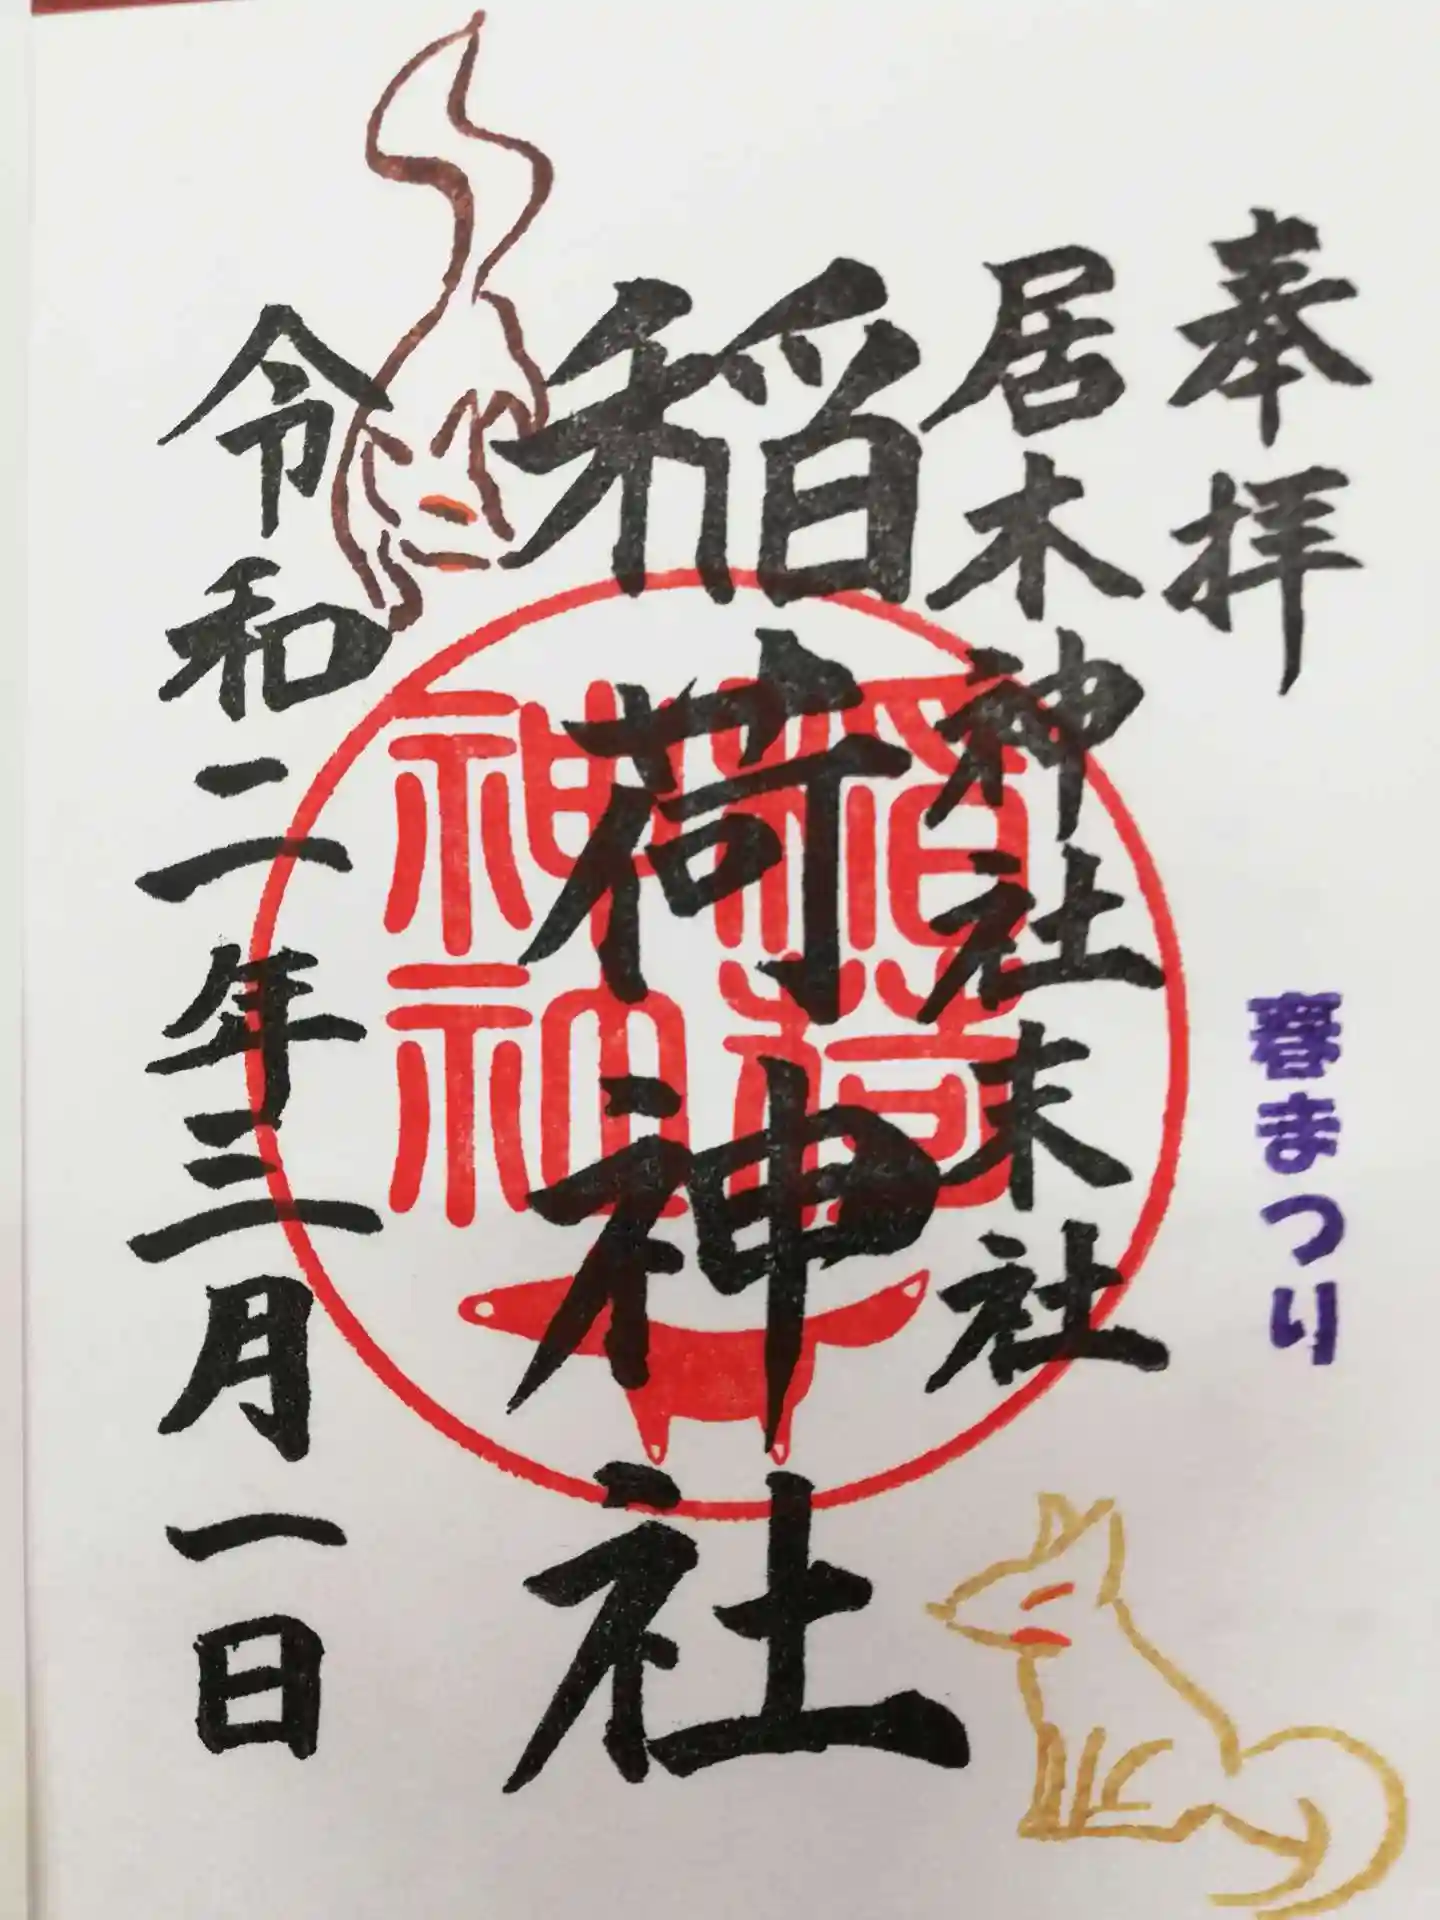 奉拝
春まつり
居木神社末社
稲荷神社
稲荷
神神
令和二年三月一日